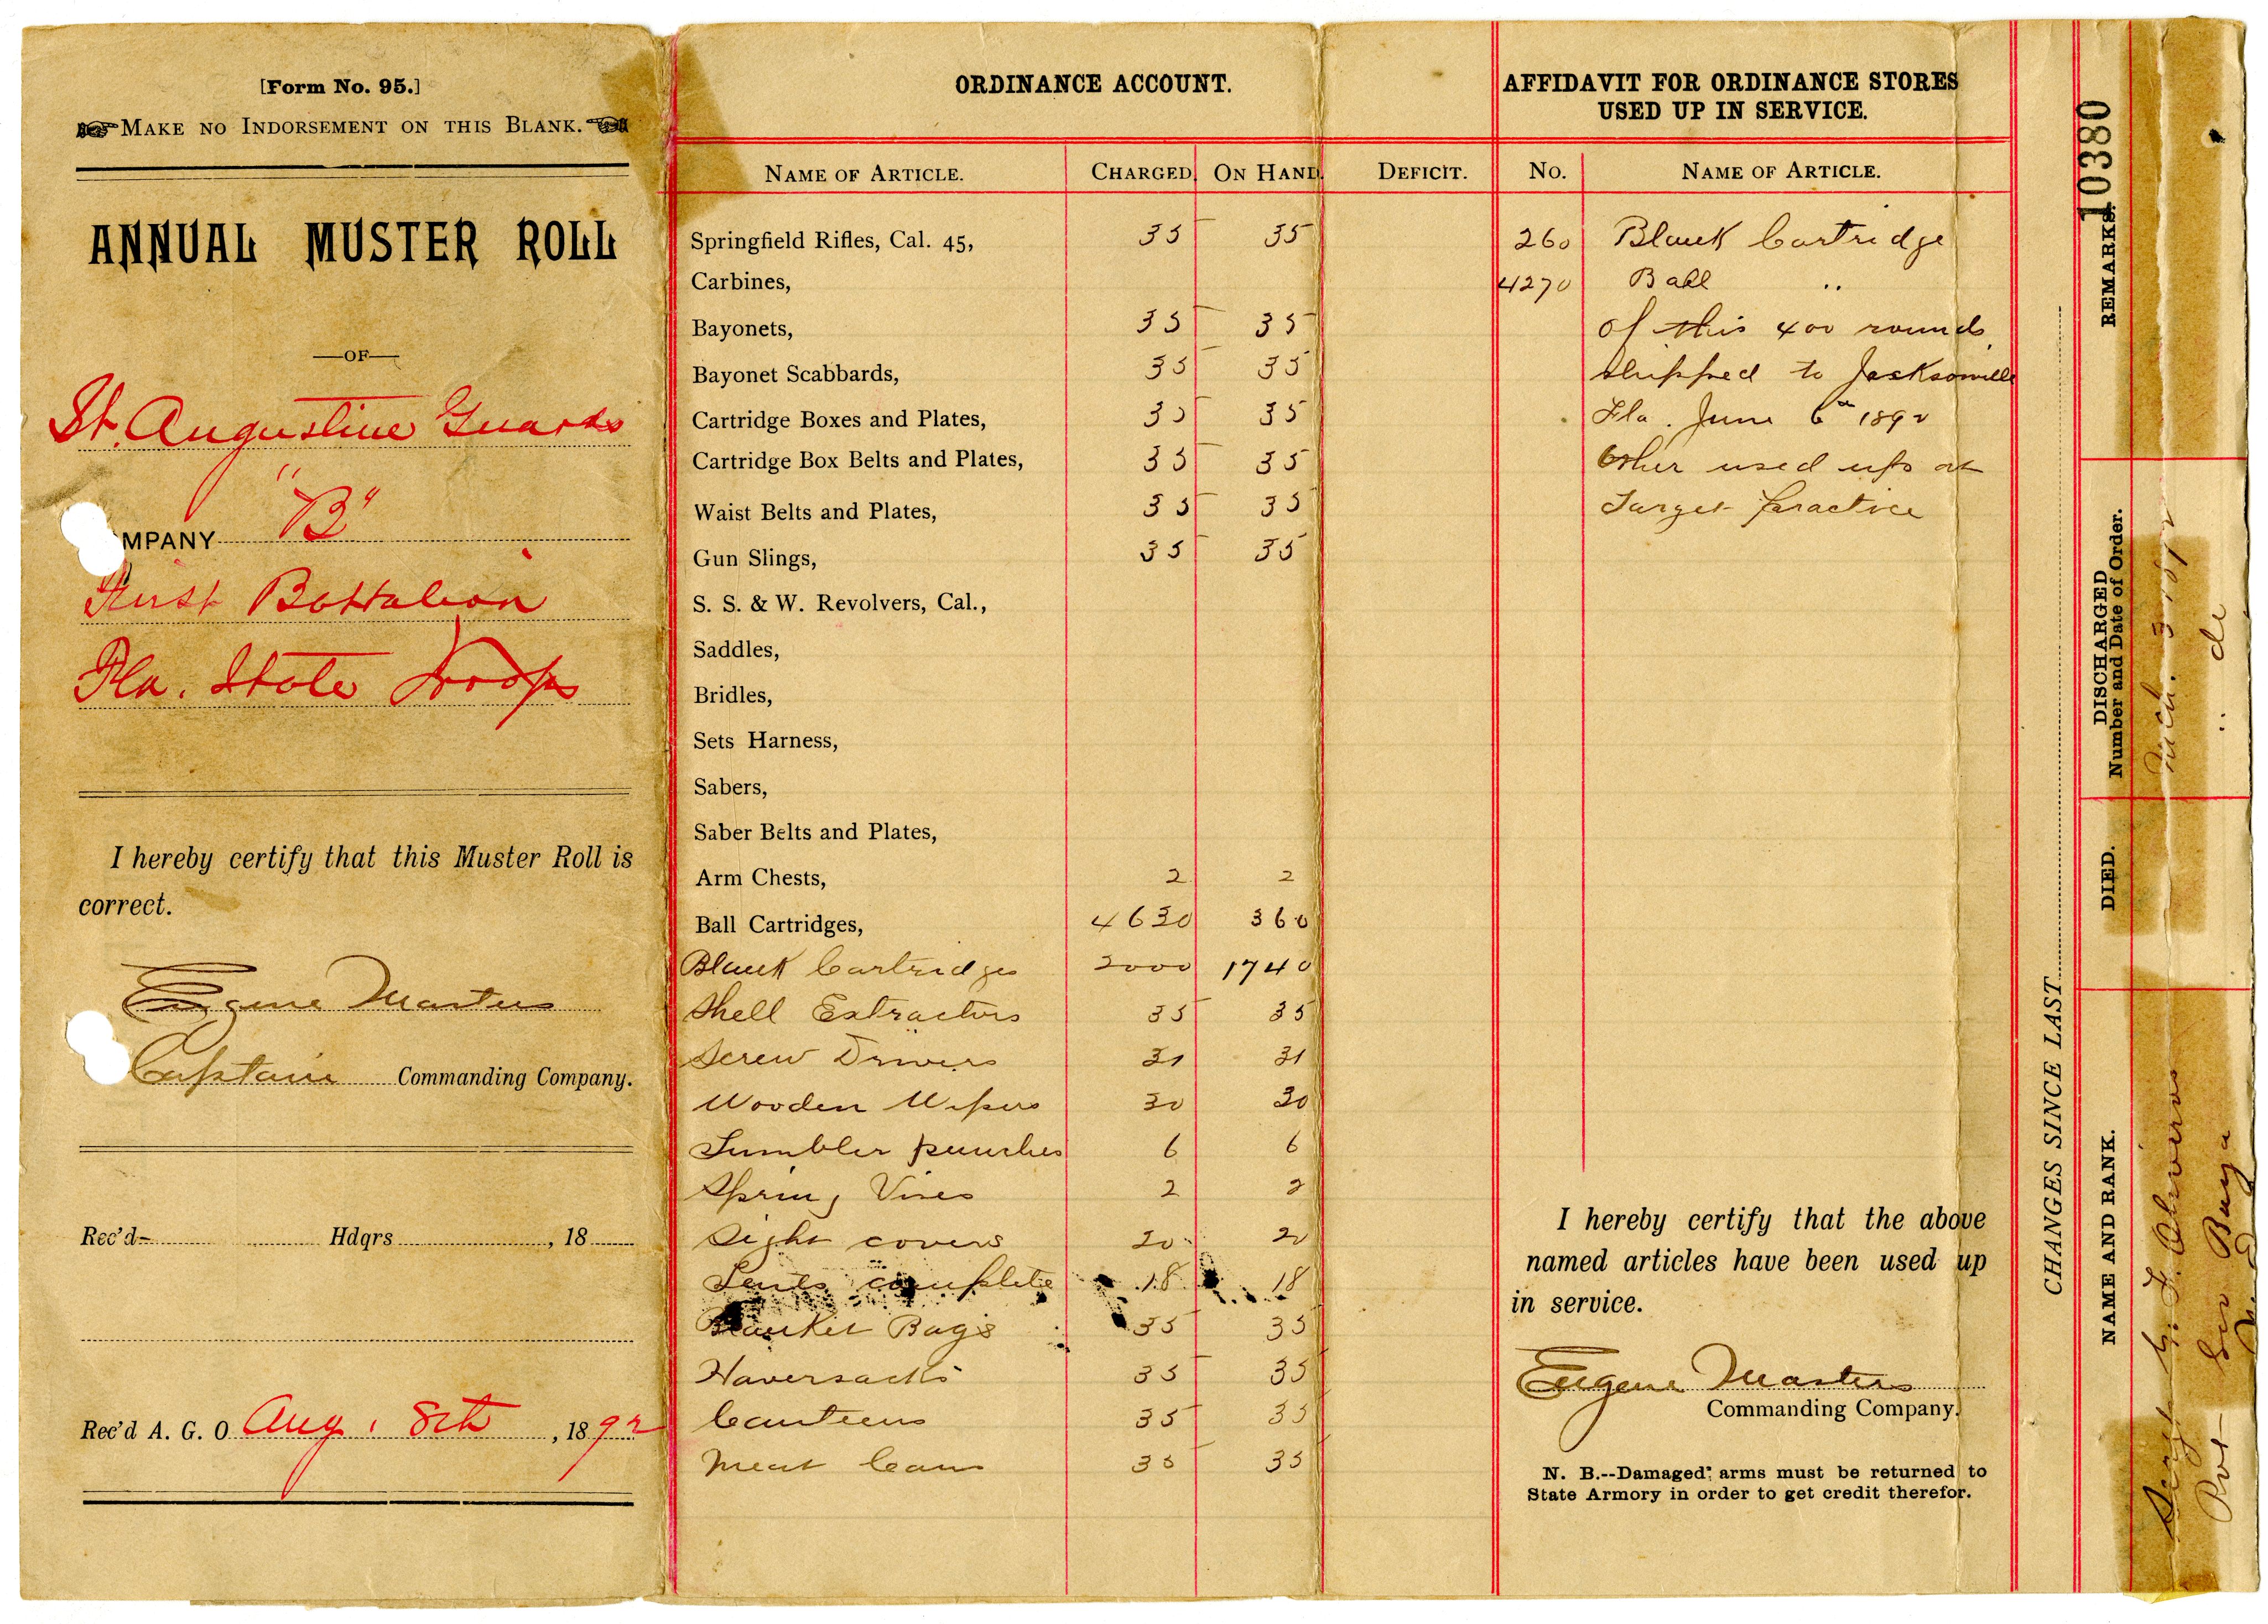 [Form No. 95.]
MAKE NO INDORSEMENT ON THIS BLANK.
ANNUAL MUSTER ROLL
—OF—
St. Augustine Guards
MPANY "B"
First Battalion
Fla. State Troops
I hereby certify that this Muster Roll is
correct.
Eugene Masters
Captain Commanding Company.
Rec'd Hdqrs , 18
Rec'd A. G. O. Aug. 8th , 1892
ORDINANCE ACCOUNT.
NAME OF ARTICLE. CHARGED. ON HAND. DEFICIT.
Springfield Rifles, Cal. 45, 35 35
Carbines,
Bayonets, 35 35
Bayonet Scabbards, 35 35
Cartridge Boxes and Plates, 35 35
Cartridge Box Belts and Plates, 35 35
Waist Belts and Plates, 35 35
Gun Slings, 35 35
S. S. & W. Revolvers, Cal.,
Saddles,
Bridles,
Sets Harness,
Sabers,
Saber Belts and Plates,
Arm Chests, 2 2
Ball Cartridges, 4630 360
Blank Cartridges 2000 1740
Shell Extractors 35 35
Screw Drivers 31 31
Wooden Wipers 30 30
Tumbler punches 6 6
Spring Vises 2 2
Sight covers 20 20
Tents complete 18 18
Blanket Bags 35 35
Haversacks 35 35
Canteens 35 35
Meat Cans 35 35
AFFIDAVIT FOR ORDINANCE STORES
USED UP IN SERVICE.
No. NAME OF ARTICLE.
260 Blank Cartridge
4270 Ball "
Of this 400 rounds
shipped to Jacksonville
Fla. June 6" 1892
Other used up at
Target practice
I hereby certify that the above
named articles have been used up
in service.
Eugene Masters
Commanding Company.
N. B.--Damaged arms must be returned to
State Armory in order to get credit therefor.
CHANGES SINCE LAST
10380
REMARKS.
DISCHARGED
Number and Date of Order.
DIED.
NAME AND RANK.
Mch. 3 1892
" de